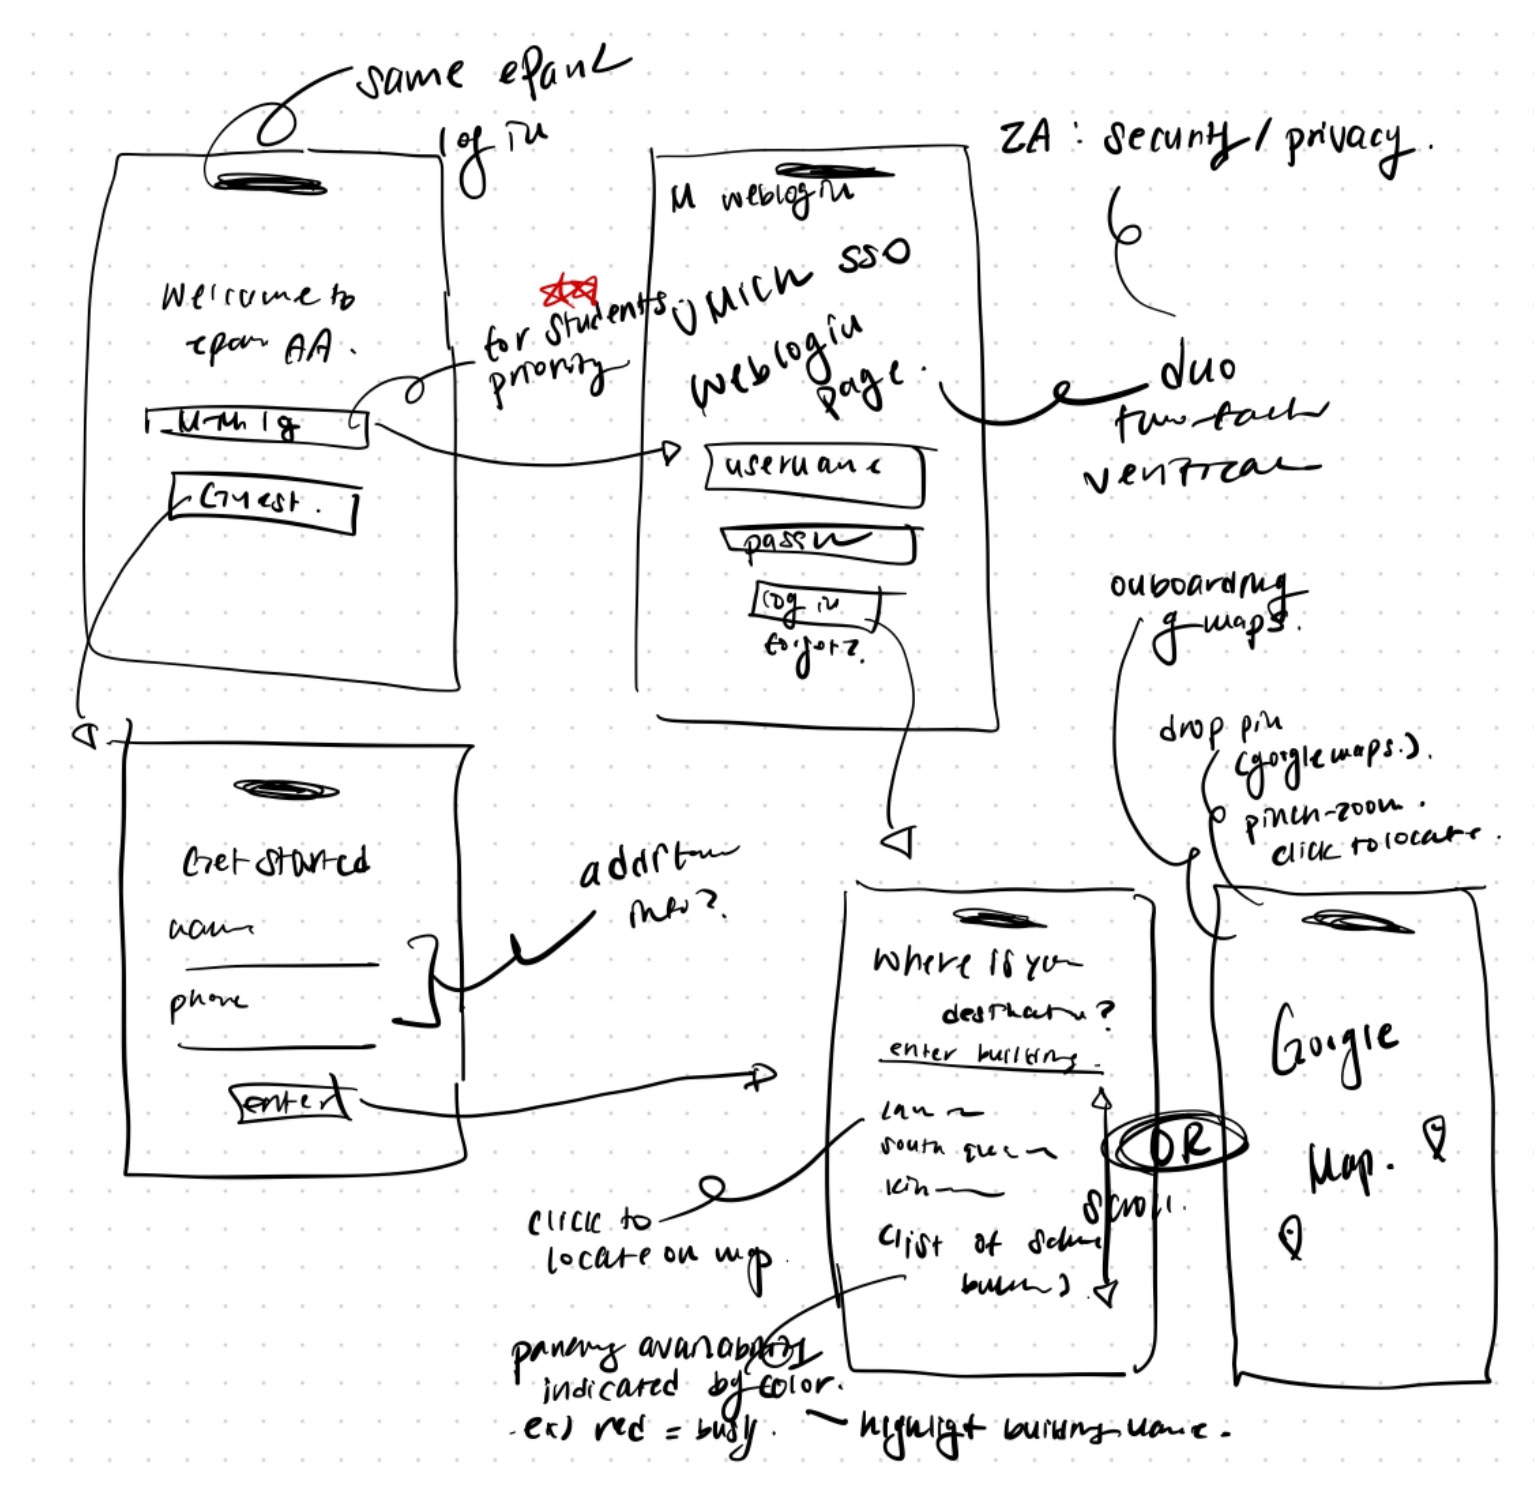 same epark
log in
Welcome to
epark AA.
Guest.
for students
priority
M weblogin
UMICH SSO
weblogin
page.
username
passw
log in
forgot?
2A : security / privacy.
duo
two-fact
verificat
onboarding
g maps.
drop pin
(google maps.).
pinch-zoom.
click to locate.
Get Started
name
phone
enter
addition
info?
where is your
destination?
enter building.
south
scroll.
(list of
OR
Google
Map.
click to
locate on map.
parking availability
indicated by color.
ex) red = busy.
highlight building name.